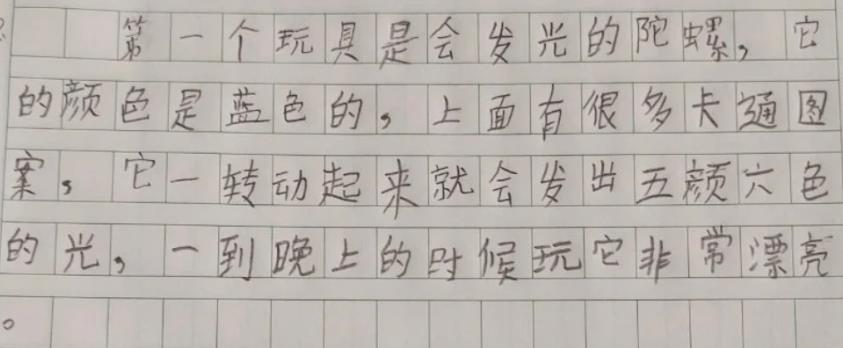 第一个玩具是会发光的陀螺，它
的颜色是蓝色的，上面有很多卡通图
案，它一转动起来就会发出五颜六色
的光，一到晚上的时候玩它非常漂亮
。